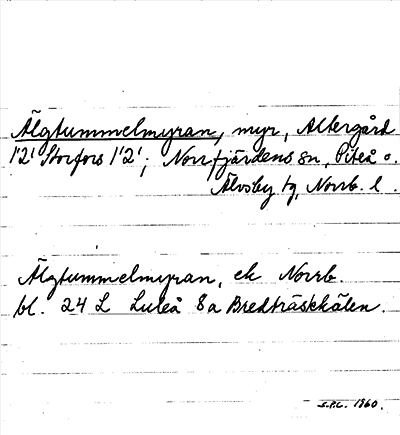 Älgtummelmyran, myr, Altergård
1'2' Storfors 1'2'; Norrfjärdens sn, Piteå o.
Älvsby tg, Norrb. l.
Älgtummelmyran, ek Norrb.
bl. 24 L Luleå 8a Bredträskhålen.
S.P.L. 1960.